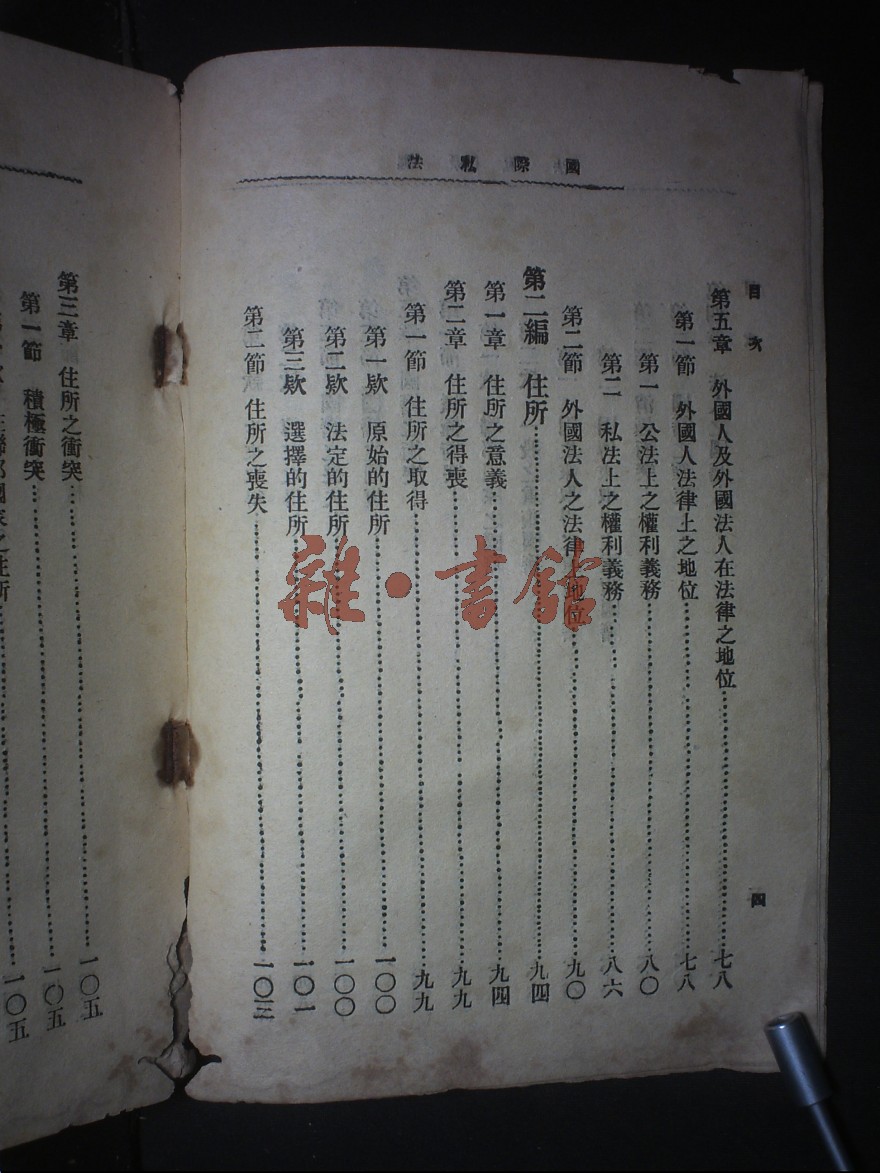 國際私法
目次
第五章 外國人及外國法人在法律之地位……七八
第一節 外國人法律上之地位……七八
第一 公法上之權利義務……八〇
第二 私法上之權利義務……八六
第二節 外國法人之法律上地位……九〇
第二編 住所……九四
第一章 住所之意義……九四
第二章 住所之得喪……九九
第一節 住所之取得……九九
第一欵 原始的住所……一〇〇
第二欵 法定的住所……一〇〇
第三欵 選擇的住所……一〇一
第二節 住所之喪失……一〇三
四
第三章 住所之衝突……一〇五
第一節 積極衝突……一〇五
國家之住所……一〇五
雜·書館